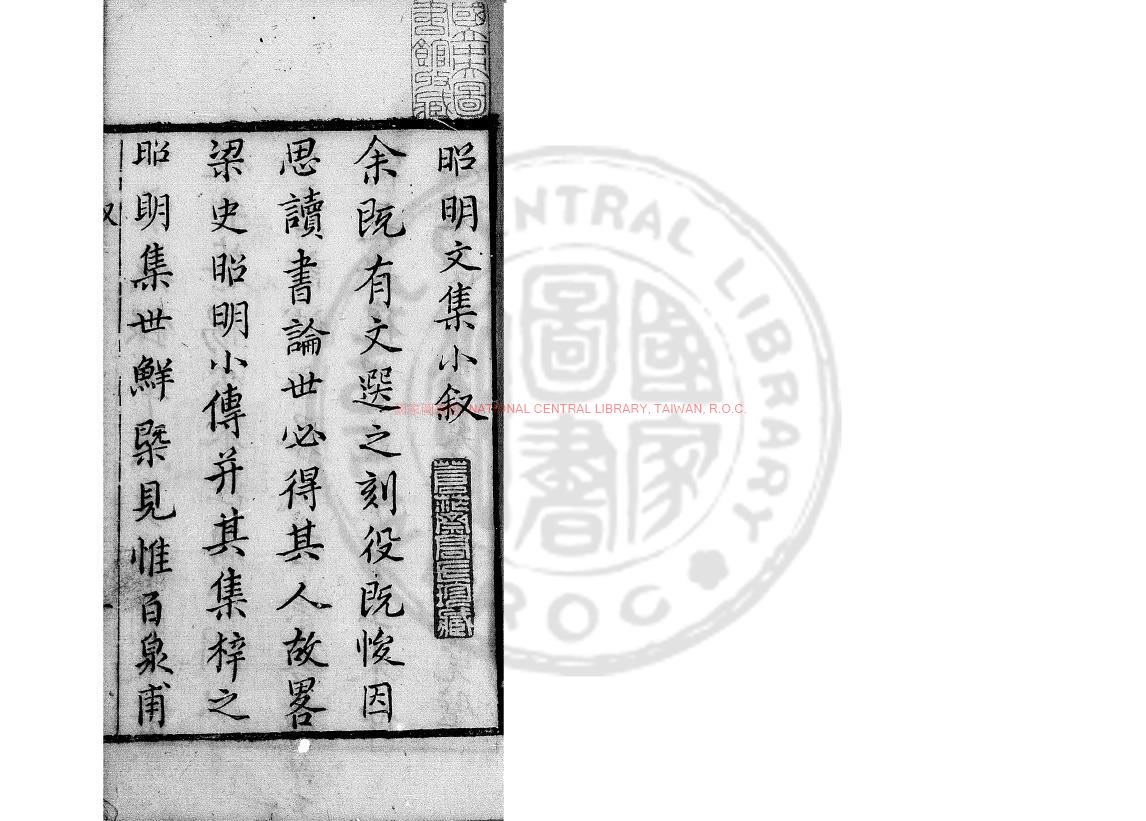 國家圖書館藏
昭明文集小叙
余既有文選之刻役既悛因
思讀書論世必得其人故畧
梁史昭明小傳并其集梓之
昭明集世鮮槩見惟百泉甫
叙
一
國家圖書館 NATIONAL CENTRAL LIBRARY, TAIWAN, R.O.C.
NATIONAL CENTRAL LIBRARY
R.O.C.
國家圖書